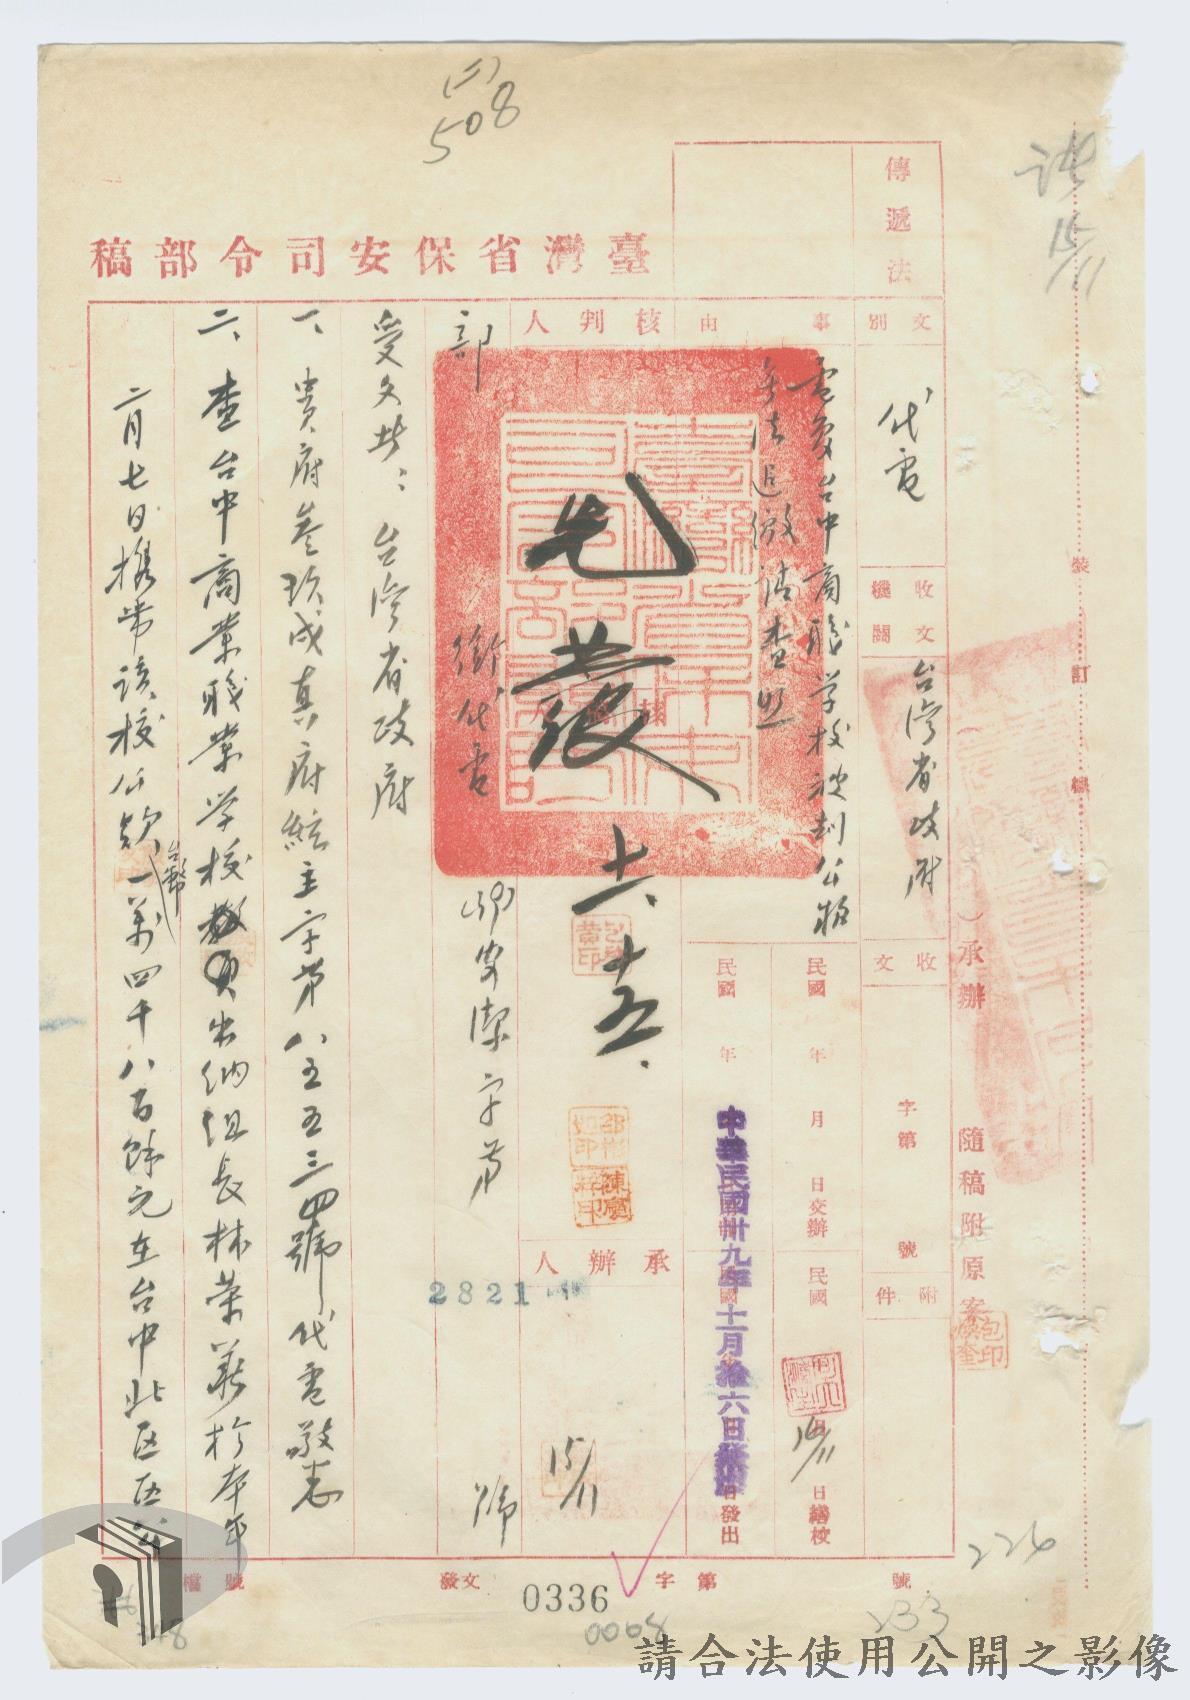 (二)
508
15/11
傳遞法
臺灣省保安司令部稿
文別
代電
收文機關
台灣省政府
收文
字第
號
附件
事由
電復台中商職学校被刼公款
無法追繳請查照
民國
年
月
日交辦
民國
15/11
日繕校
民國
年
中華民國卅九年十一月拾六日
日發出
核判人
十一、十五、
承辦人
15/11
部
銜代電
安潔字第
2821
號
受文者：台灣省政府
一、貴府叁玖戌真府綜主字第八五五三四號代電敬悉
二、查台中商業職業学校出納组長林荣華於本年
二月七日携帶該校公款
台幣
一萬四千八百餘元在台中北区区公
承辦
隨稿附原案
裝
訂
線
檔
號
發文
字
第
號
0336
0008
226
233
請合法使用公開之影像